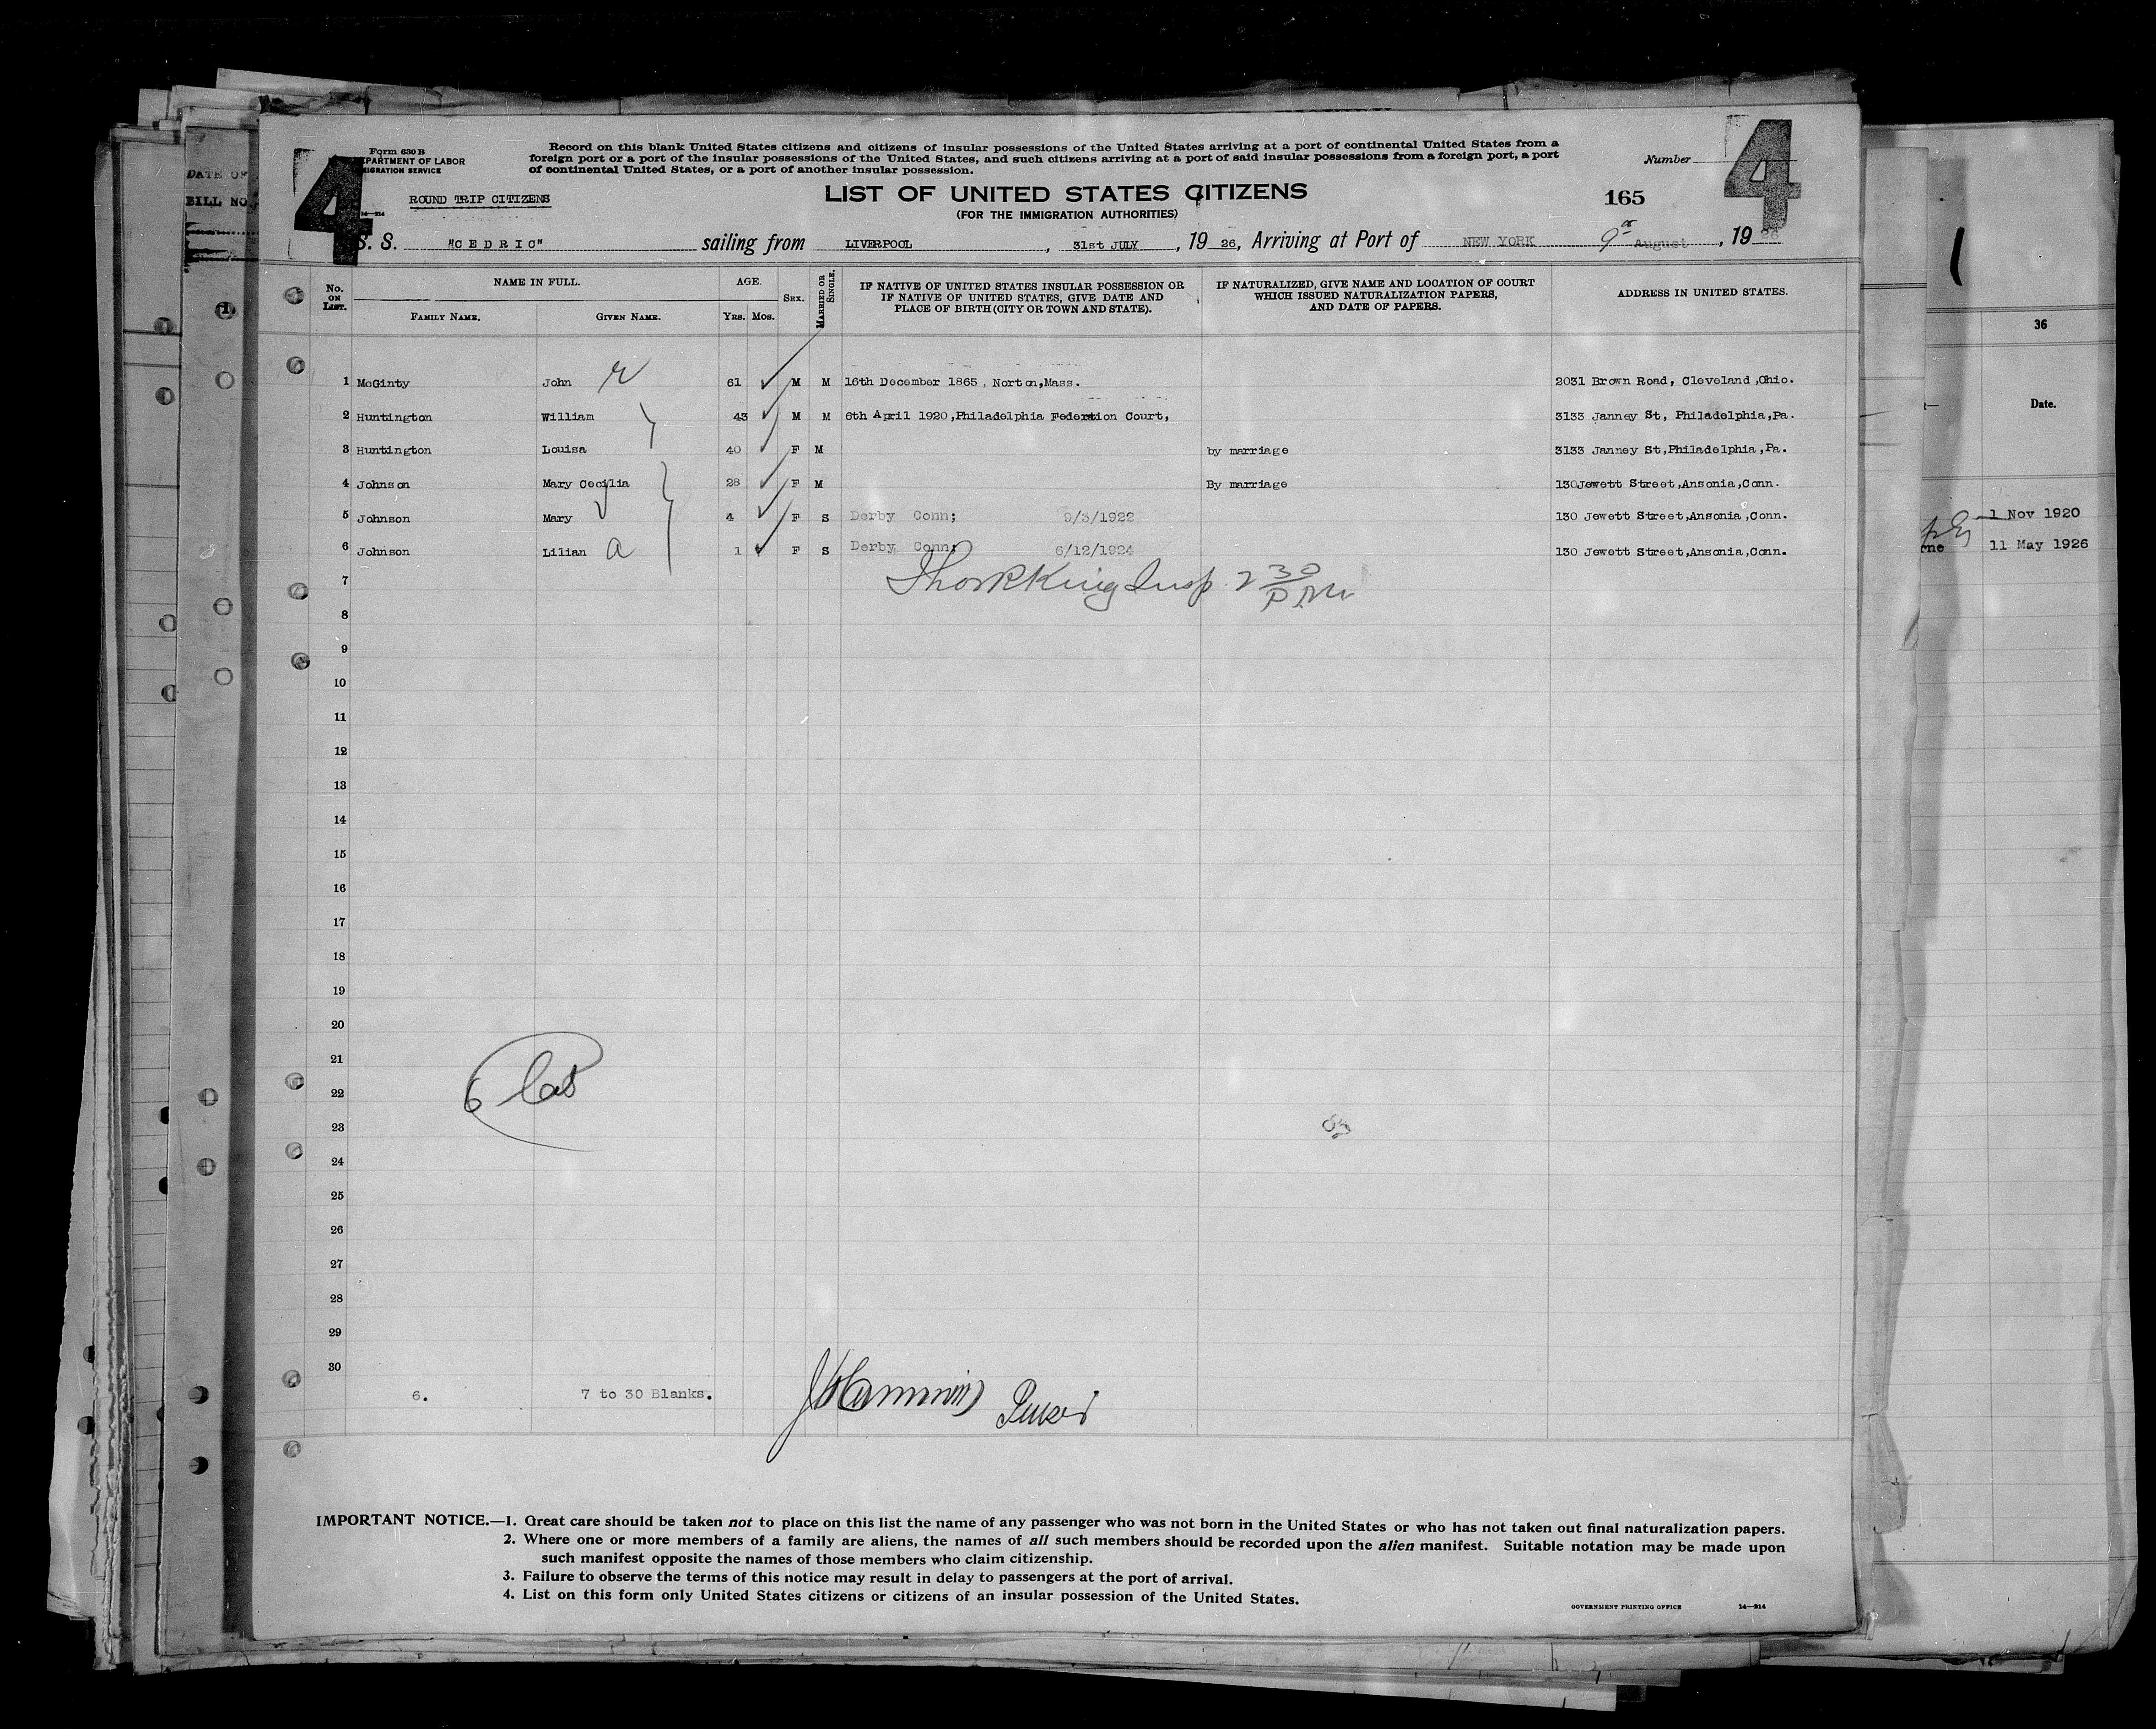 Form 630 B
DEPARTMENT OF LABOR
IMMIGRATION SERVICE
Record on this blank United States citizens and citizens of insular possessions of the United States arriving at a port of continental United States from a
foreign port or a port of the insular possessions of the United States, and such citizens arriving at a port of said insular possessions from a foreign port, a port
of continental United States, or a port of another insular possession.
Number
4
4
ROUND TRIP CITIZENS
LIST OF UNITED STATES CITIZENS
(FOR THE IMMIGRATION AUTHORITIES)
165
14—214
S. S. "CEDRIC" sailing from LIVERPOOL, 31st JULY, 1926, Arriving at Port of NEW YORK 9th August, 1926
No. ON LIST.
NAME IN FULL.
FAMILY NAME. GIVEN NAME.
AGE.
YRS. MOS.
SEX.
MARRIED OR SINGLE.
IF NATIVE OF UNITED STATES INSULAR POSSESSION OR
IF NATIVE OF UNITED STATES, GIVE DATE AND
PLACE OF BIRTH (CITY OR TOWN AND STATE).
IF NATURALIZED, GIVE NAME AND LOCATION OF COURT
WHICH ISSUED NATURALIZATION PAPERS,
AND DATE OF PAPERS.
ADDRESS IN UNITED STATES.
1 McGinty John 61 M M 16th December 1865, Norton,Mass. 2031 Brown Road, Cleveland,Ohio.
2 Huntington William 43 M M 6th April 1920,Philadelphia Federtion Court, 3133 Janney St, Philadelphia,Pa.
3 Huntington Louisa 40 F M by marriage 3133 Janney St,Philadelphia,Pa.
4 Johnson Mary Cecilia 28 F M By marriage 130Jewett Street,Ansonia,Conn.
5 Johnson Mary 4 F S Derby Conn; 9/3/1922 130 Jewett Street,Ansonia,Conn.
6 Johnson Lilian a 1 F S Derby Conn; 6/12/1924 130 Jewett Street,Ansonia,Conn.
7 King Insp. 2 30 P.M.
8
9
10
11
12
13
14
15
16
17
18
19
20
21
22
6
23
24
25
26
27
28
29
30
6. 7 to 30 Blanks.
Purser
IMPORTANT NOTICE.—1. Great care should be taken not to place on this list the name of any passenger who was not born in the United States or who has not taken out final naturalization papers.
2. Where one or more members of a family are aliens, the names of all such members should be recorded upon the alien manifest. Suitable notation may be made upon
such manifest opposite the names of those members who claim citizenship.
3. Failure to observe the terms of this notice may result in delay to passengers at the port of arrival.
4. List on this form only United States citizens or citizens of an insular possession of the United States.
GOVERNMENT PRINTING OFFICE 14—214
DATE OF
BILL NO.
1
1
36
Date.
1 Nov 1920
11 May 1926